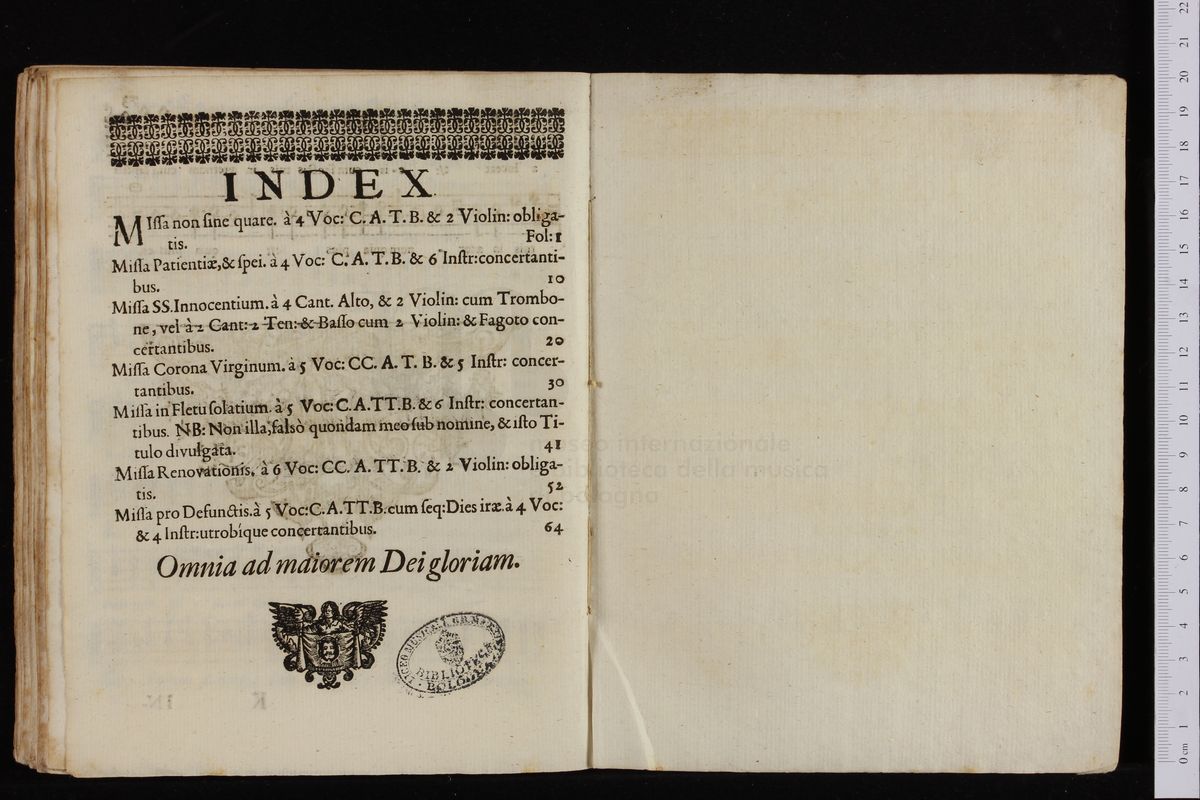 INDEX
MIſſa non ſine quare. à 4 Voc: C. A. T. B. & 2 Violin: obliga-
tis. Fol: 1
Miſſa Patientiæ, & ſpei. à 4 Voc: C. A. T. B. & 6 Inſtr: concertanti-
bus. 10
Miſſa SS. Innocentium. à 4 Cant. Alto, & 2 Violin: cum Trombo-
ne, vel à 2 Cant: 2 Ten: & Baſſo cum 2 Violin: & Fagoto con-
certantibus. 20
Miſſa Corona Virginum. à 5 Voc: CC. A. T. B. & 5 Inſtr: concer-
tantibus. 30
Miſſa in Fletu ſolatium. à 5 Voc: C. A. TT. B. & 6 Inſtr: concertan-
tibus. NB: Non illa, falsò quondam meo ſub nomine, & iſto Ti-
tulo divulgata. 41
Miſſa Renovationis. à 6 Voc: CC. A. TT. B. & 2 Violin: obliga-
tis. 52
Miſſa pro Defunctis. à 5 Voc: C. A. TT. B. cum ſeq: Dies iræ. à 4 Voc:
& 4 Inſtr: utrobique concertantibus. 64
Omnia ad maiorem Dei gloriam.
LICEO MUSICALE
BIBLIOTECA
BOLOGNA
museo internazionale
biblioteca della musica
bologna
0 cm 1 2 3 4 5 6 7 8 9 10 11 12 13 14 15 16 17 18 19 20 21 22